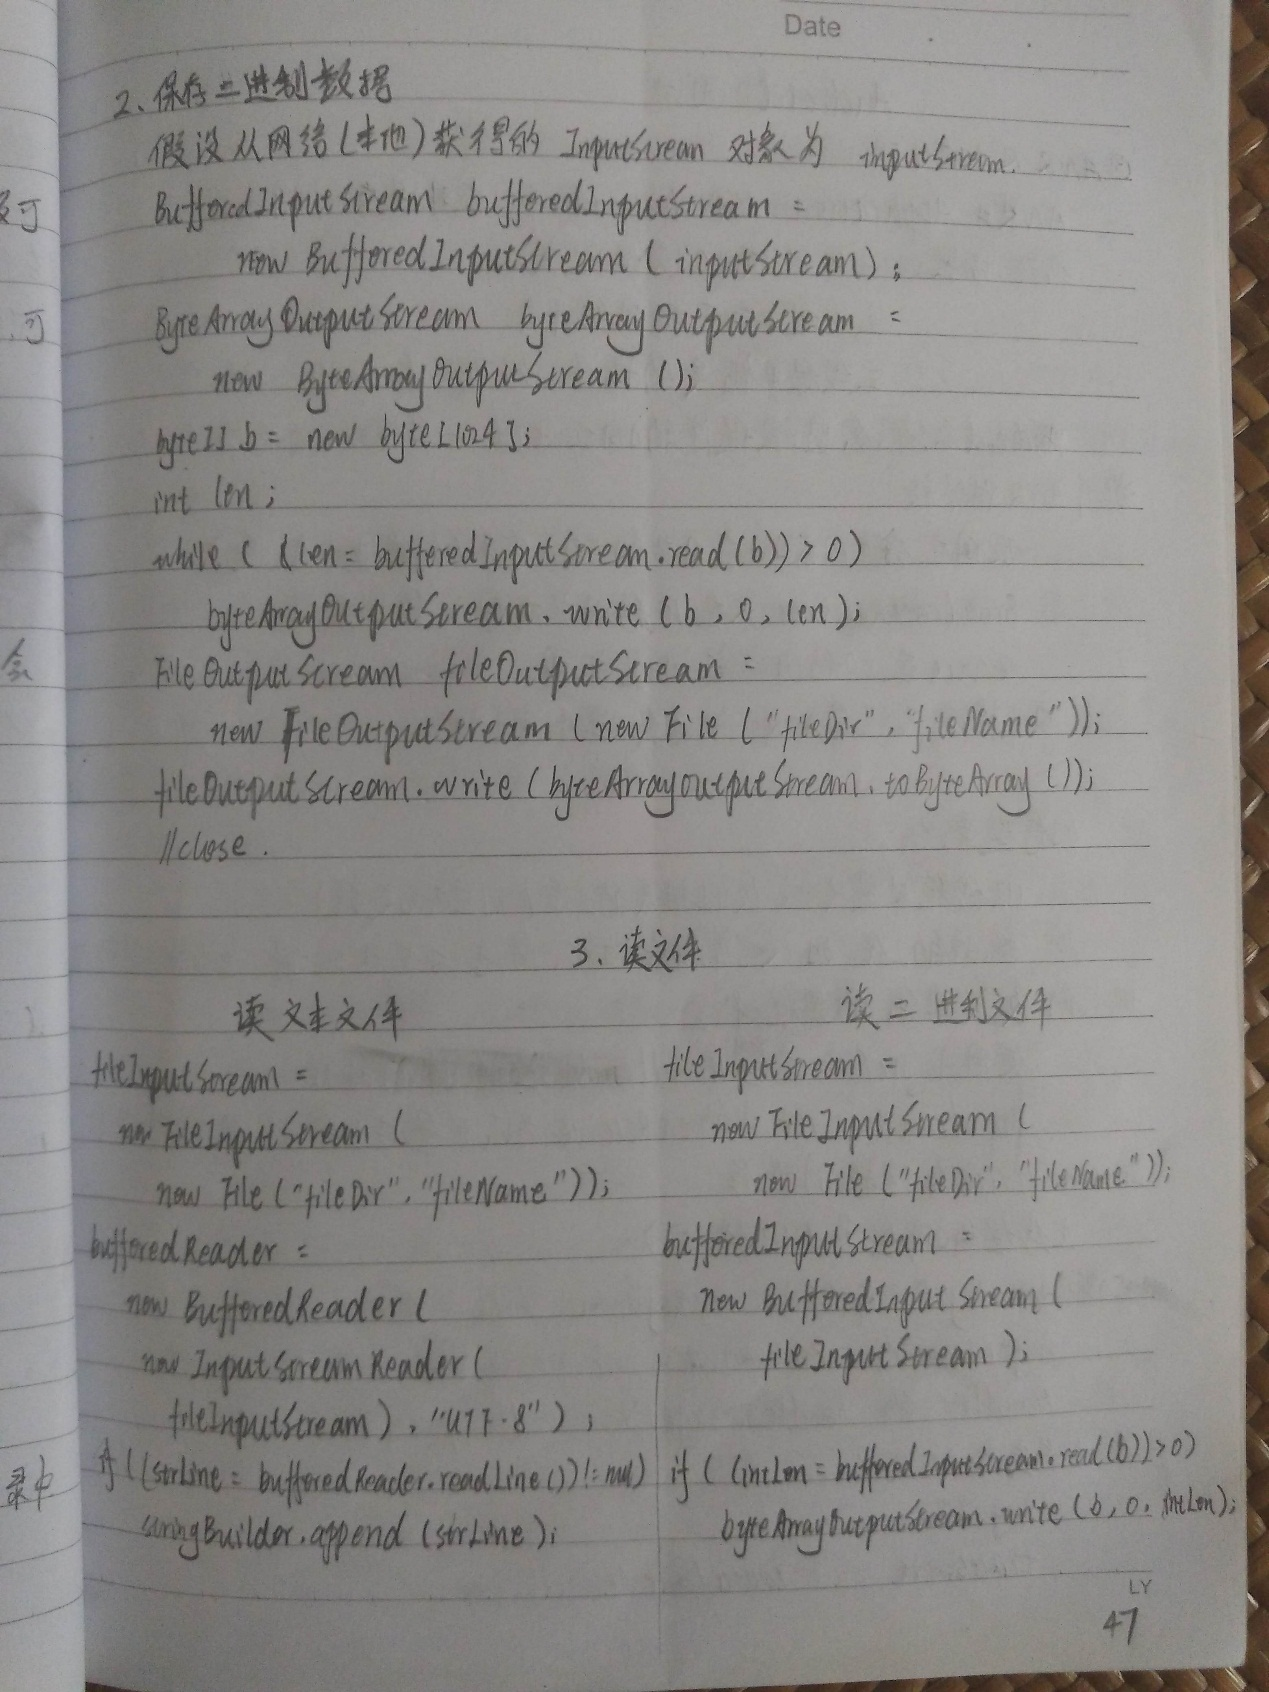 Date
2、保存二进制数据
假设从网络(本地)获得的 InputStream 对象为 inputStream.
BufferedInputStream bufferedInputStream =
new BufferedInputStream ( inputStream ) ;
ByteArrayOutputStream byteArrayOutputStream =
new ByteArrayOutputStream ();
byte[] b = new byte[1024];
int len ;
while ( (len = bufferedInputStream.read(b)) > 0)
byteArrayOutputStream. write ( b , 0, len );
FileOutputStream fileOutputStream =
new FileOutputStream ( new File ( "fileDir" , "fileName" ));
fileOutputStream. write ( byteArrayOutputStream. toByteArray ());
//close .
3、读文件
读文本文件
fileInputStream =
new FileInputStream (
new File ( "fileDir" , "fileName" ));
bufferedReader =
new BufferedReader (
new InputStreamReader (
fileInputStream ) , "UTF-8" ) ;
if ((strLine = bufferedReader.readLine()) != null)
stringBuilder.append (strLine);
读二进制文件
fileInputStream =
new FileInputStream (
new File ( "fileDir" , "fileName" ));
bufferedInputStream =
new BufferedInputStream (
fileInputStream );
if ( (intLen = bufferedInputStream.read(b)) > 0)
byteArrayOutputStream.write (b, 0, intLen);
LY
47